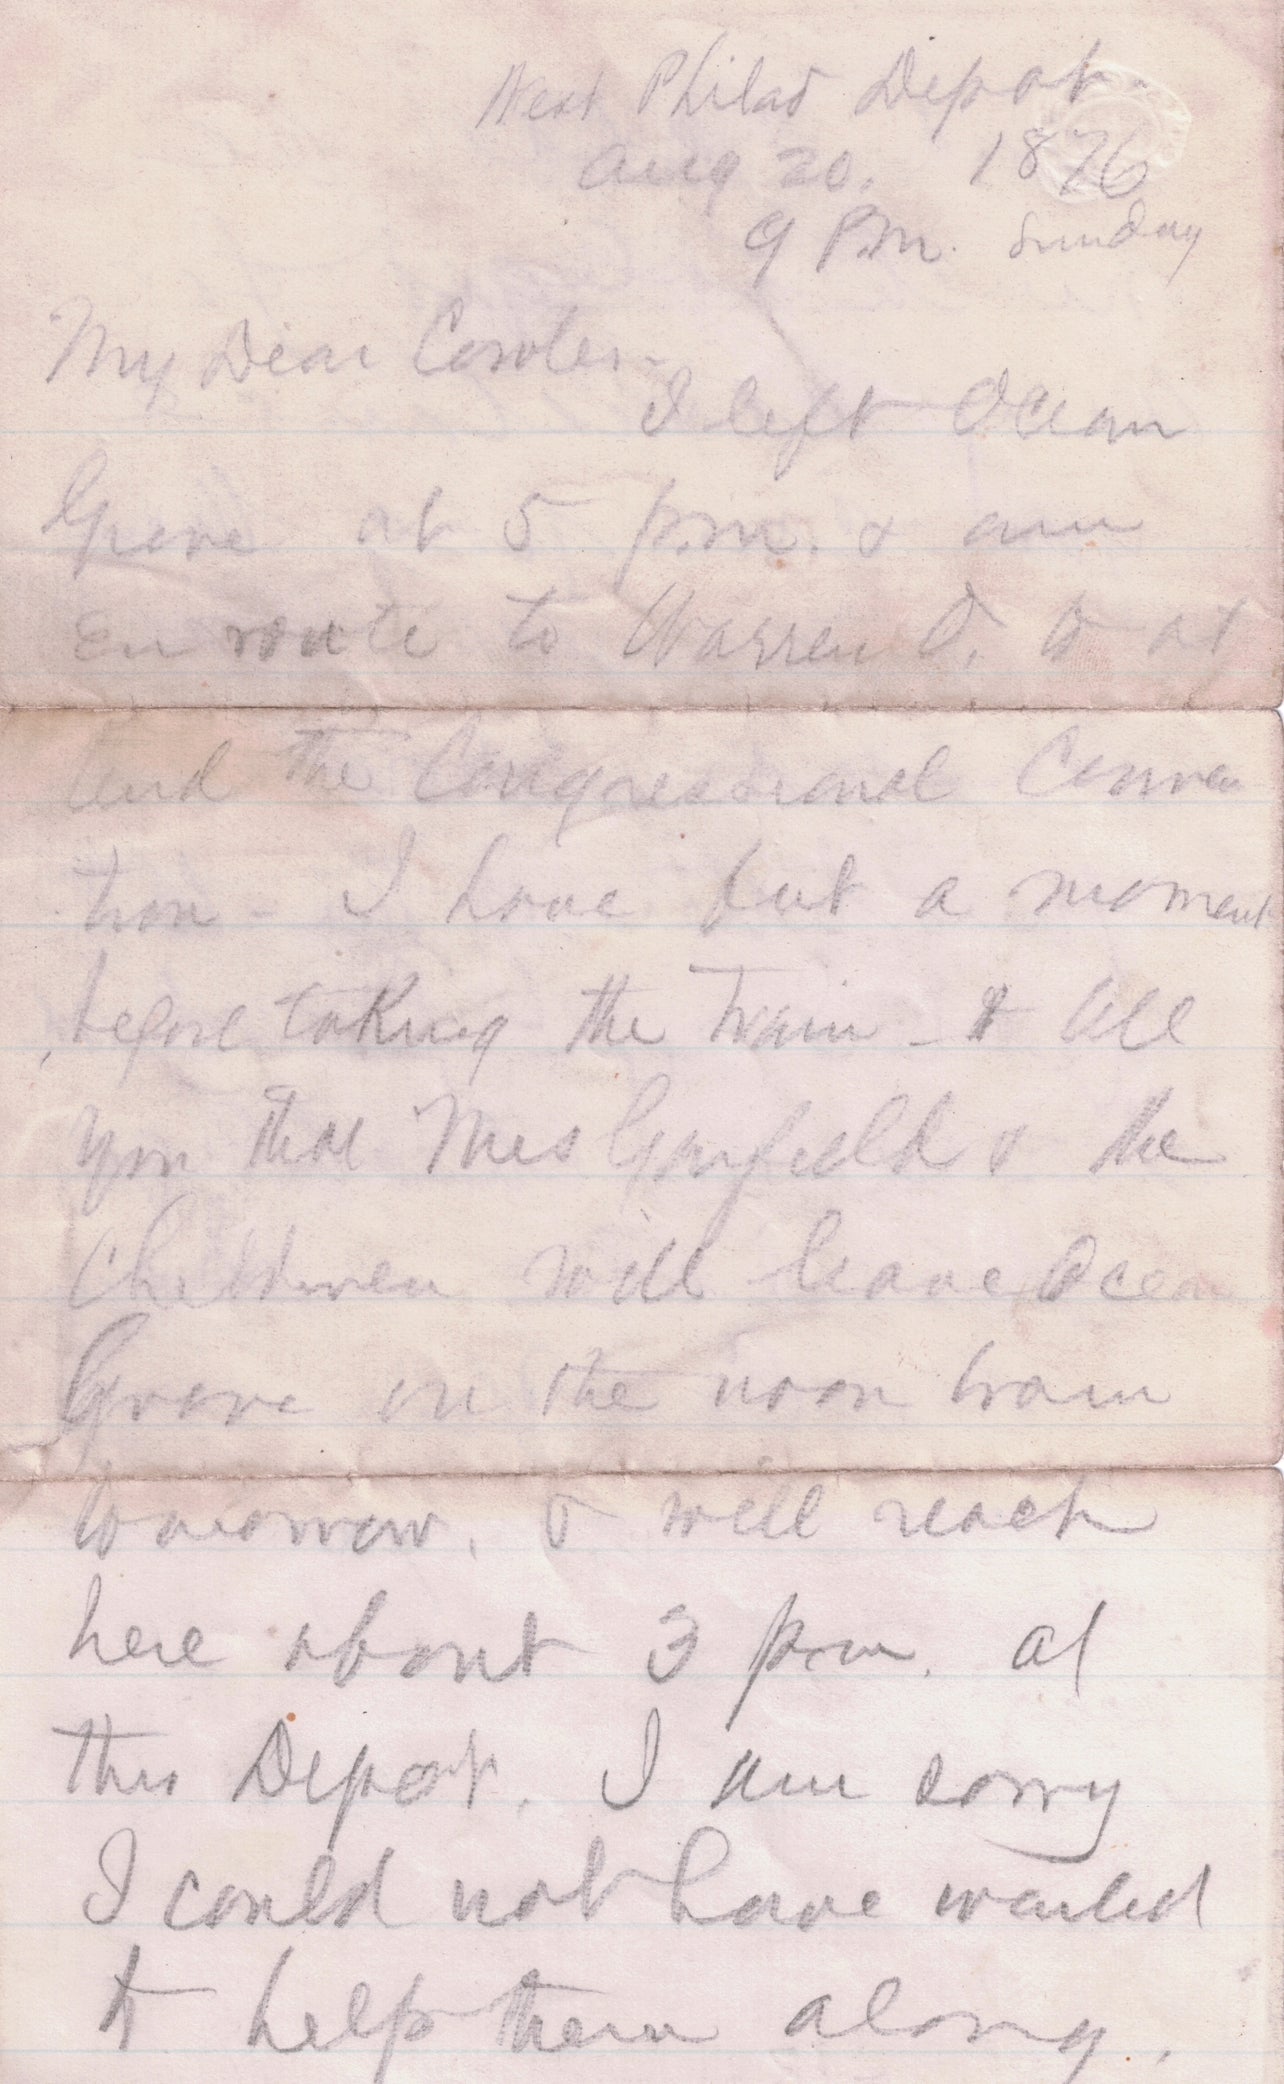 West Philad Depot.
Aug 20. 1876
9 P.M. Sunday
My Dear Cowles-
I left Ocean
Grove at 5 p.m. & am
en route to Warren O. to at
tend the Congressional Conven
tion - I have but a moment
before taking the train - to tell
you that Mrs Garfield & the
Children will leave Ocean
Grove on the noon train
tomorrow. & will reach
here about 3 p.m. at
this Depot. I am sorry
I could not have waited
to help them along.